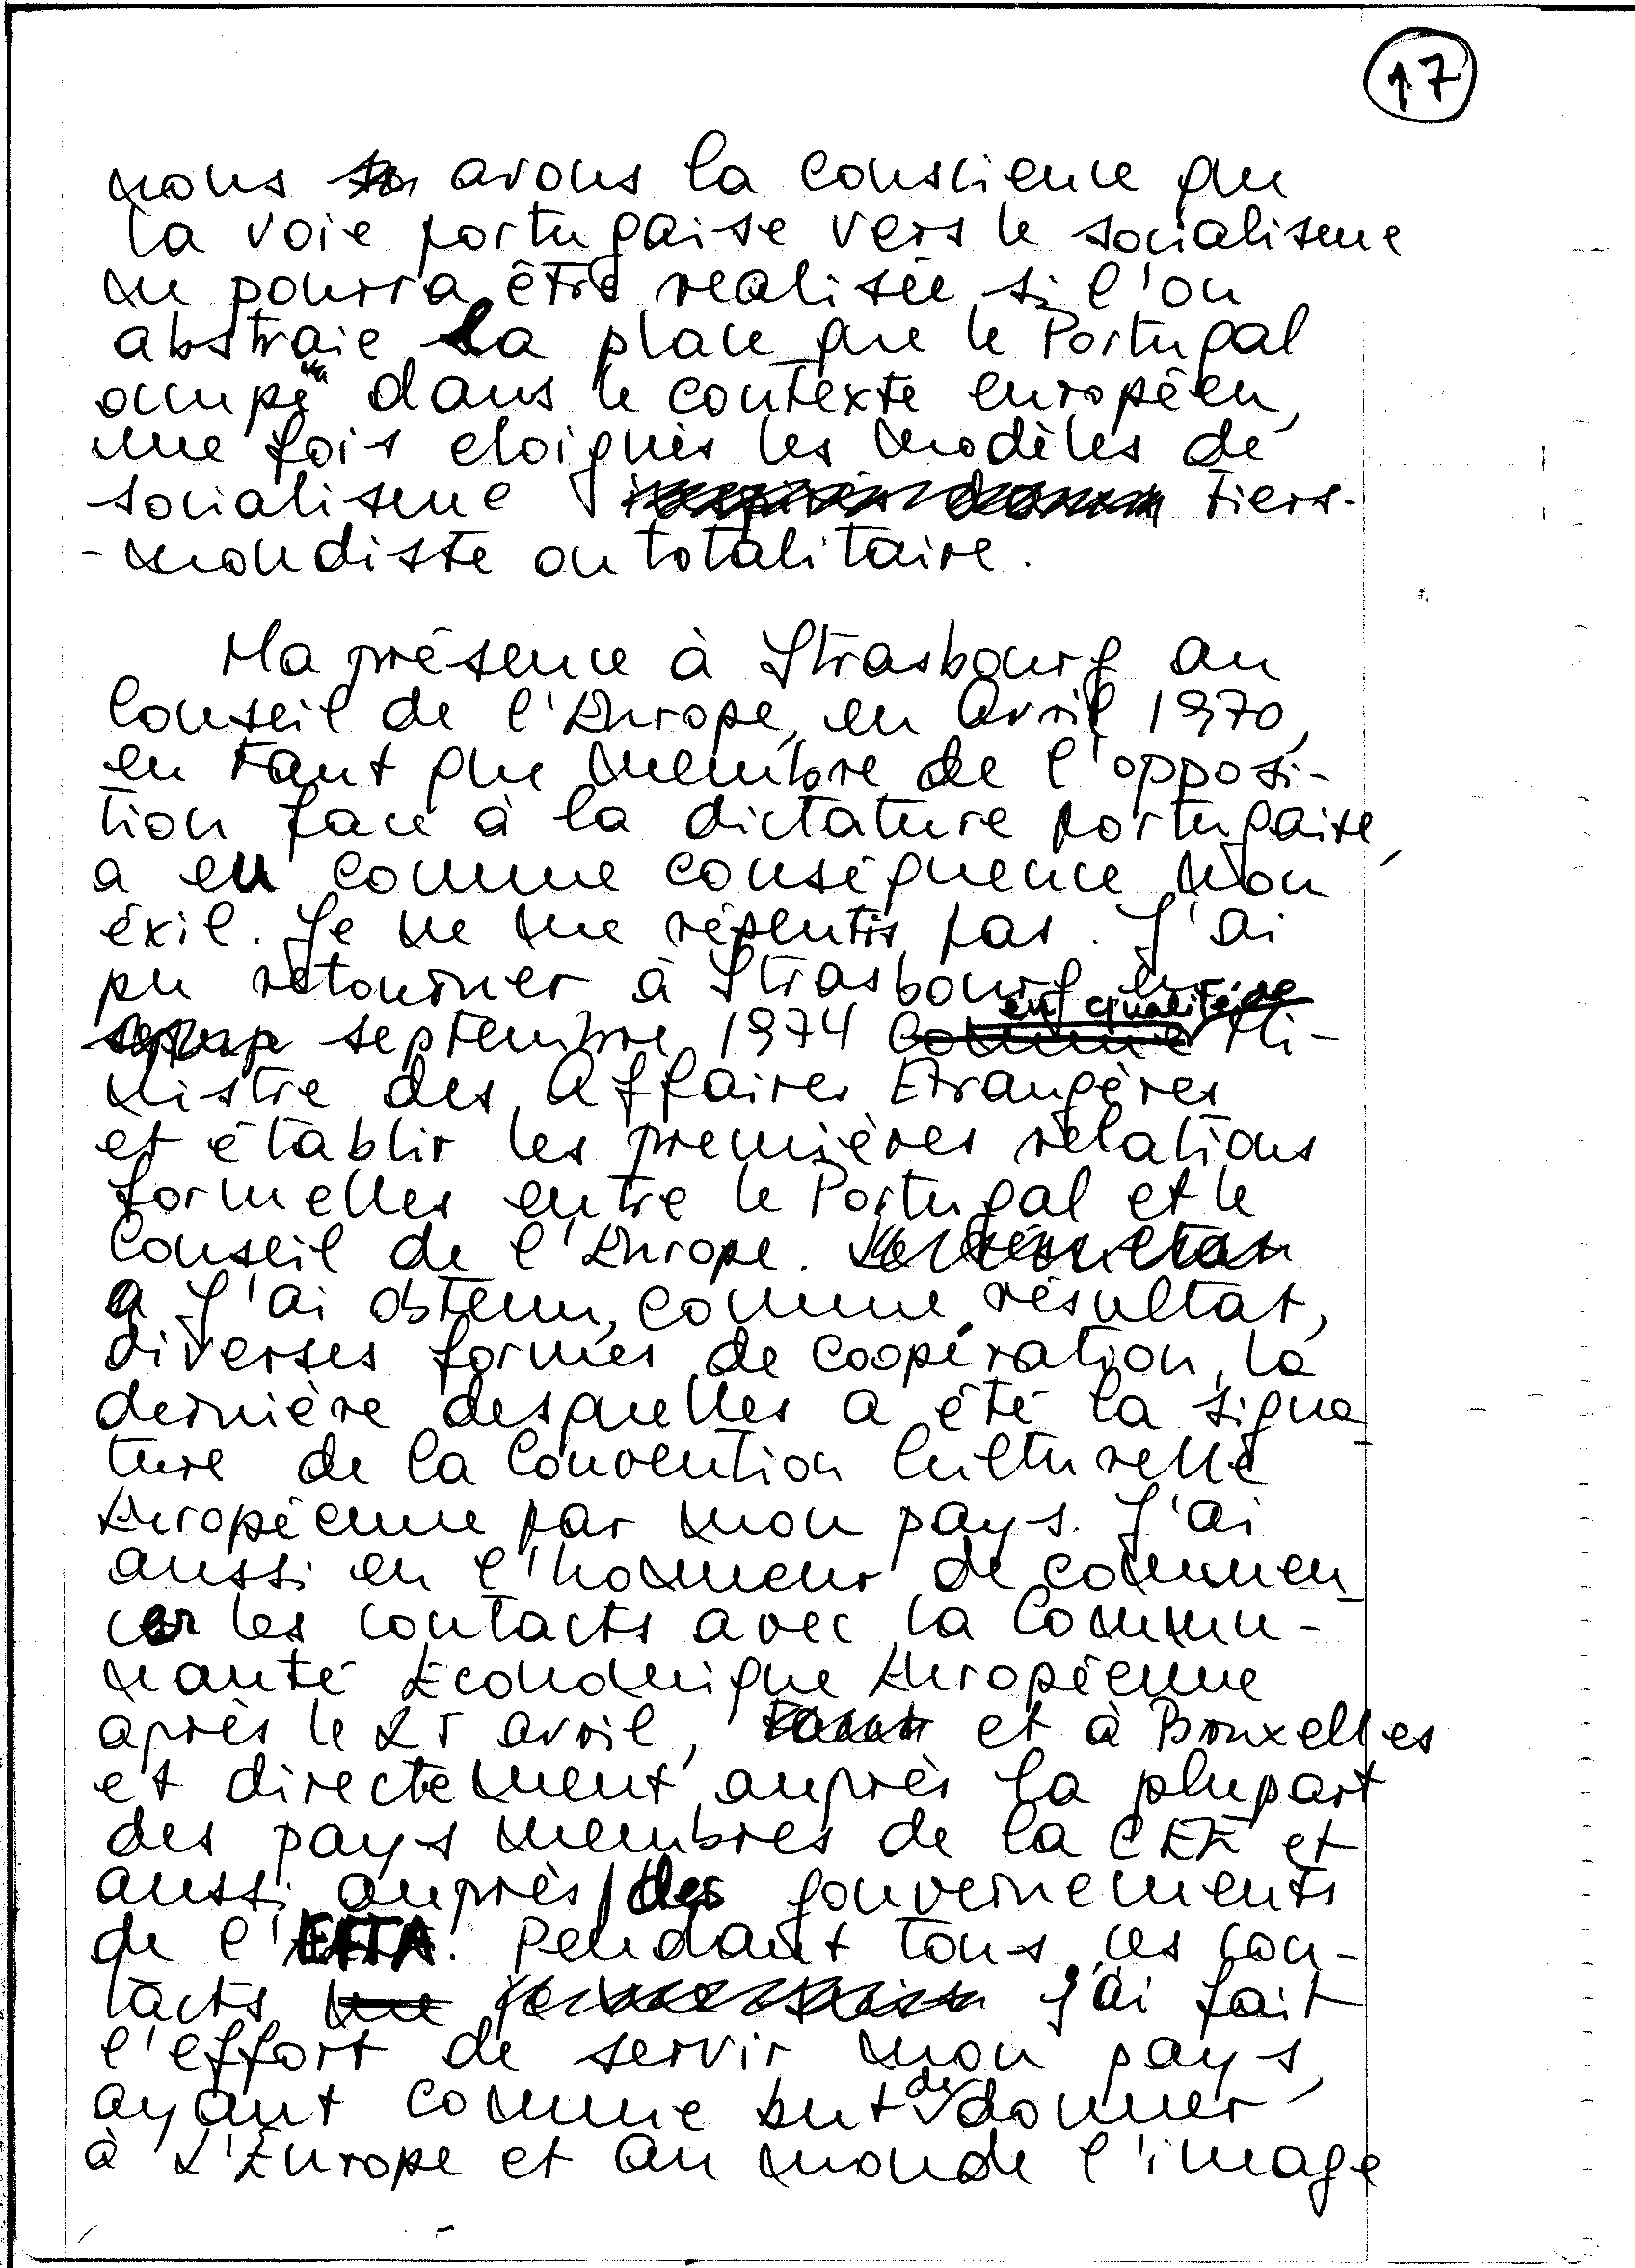 17
nous avons la conscience que
la voie portugaise vers le socialisme
ne pourra être realisée si l'on
abstraie la place que le Portugal
occupe dans le contexte européen,
une fois eloignés les modèles de
socialisme tiers-
-mondiste ou totalitaire.
Ma présence à Strasbourg au
Conseil de l'Europe, en Avril 1970,
en tant que membre de l'opposi-
tion face à la dictature portugaise,
a eu comme conséquence mon
éxil. Je ne me répentis pas. J'ai
pu retourner à Strasbourg en
en qualité de
septembre 1974 comme Mi-
nistre des Affaires Etrangères
et établir les premières relations
formelles entre le Portugal et le
Conseil de l'Europe. Le résultat
a J'ai obtenu, comme résultat,
diverses formes de coopération, la
dernière desquelles a été la signa-
ture de la Convention Culturelle
Européenne par mon pays. J'ai
aussi eu l'honneur de commen-
cer les contacts avec la Commu-
nauté Économique Européenne
après le 25 avril, tant et à Bruxelles
et directement auprès la plupart
des pays membres de la CEE et
aussi auprès des gouvernements
de l'EFTA. Pendant tous ces con-
tacts j'ai fait
l'effort de servir mon pays,
ayant comme but de donner
à L'Europe et au monde l'image